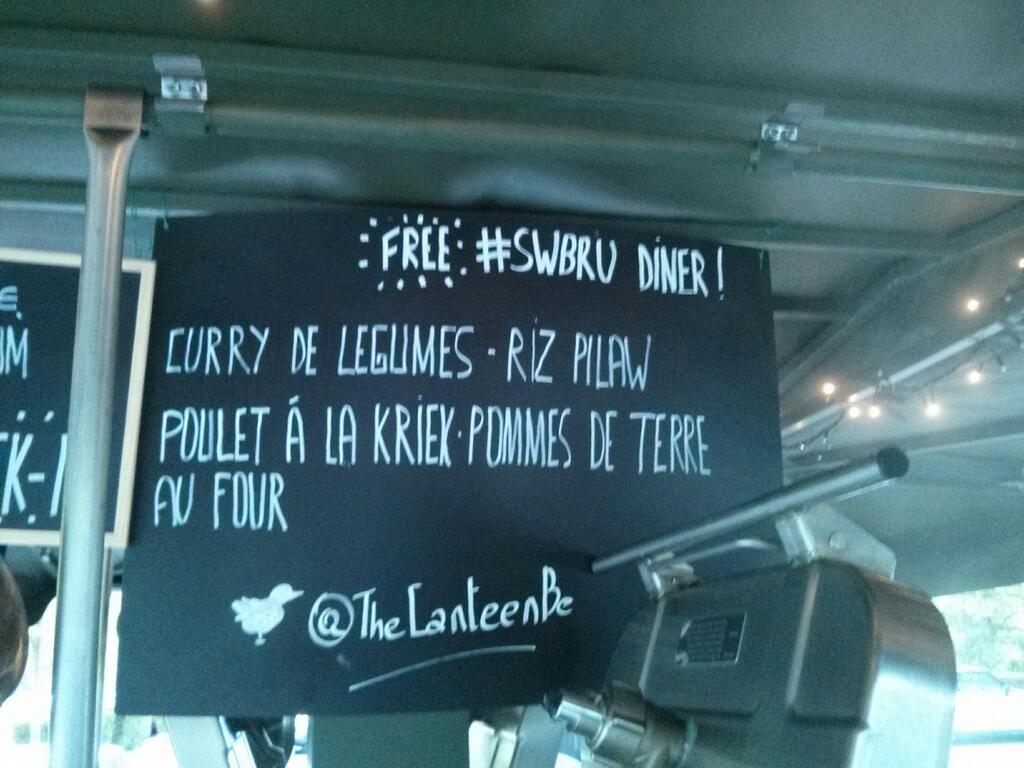 FREE #SWBRU DINER!
CURRY DE LEGUMES - RIZ PILAW
POULET Á LA KRIEK · POMMES DE TERRE
AU FOUR
@TheCanteenBe